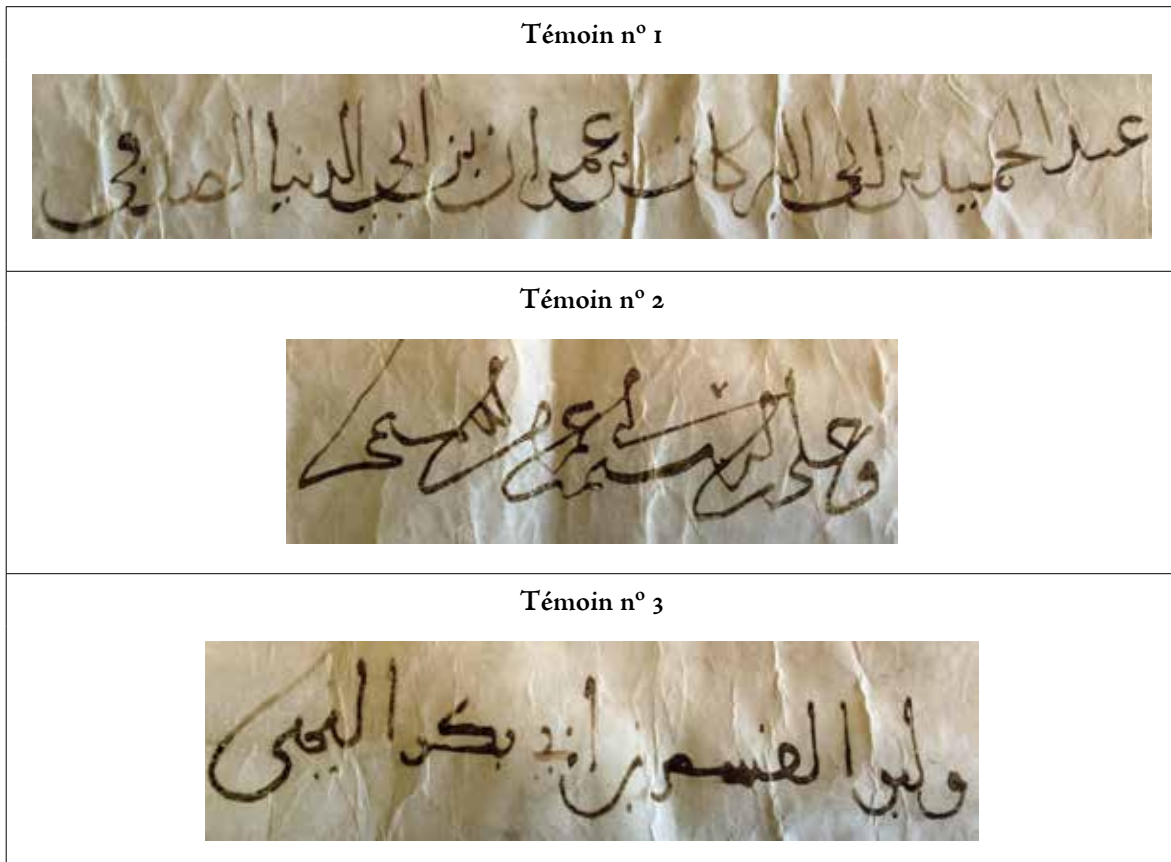 Témoin nº 1
عبد الحميد بن ابي البركات بن عمران بن ابي الدنيا الصدفي
Témoin nº 2
وعلي بن عمر بن
Témoin nº 3
وابو القسم بن ابي بكر اليمني